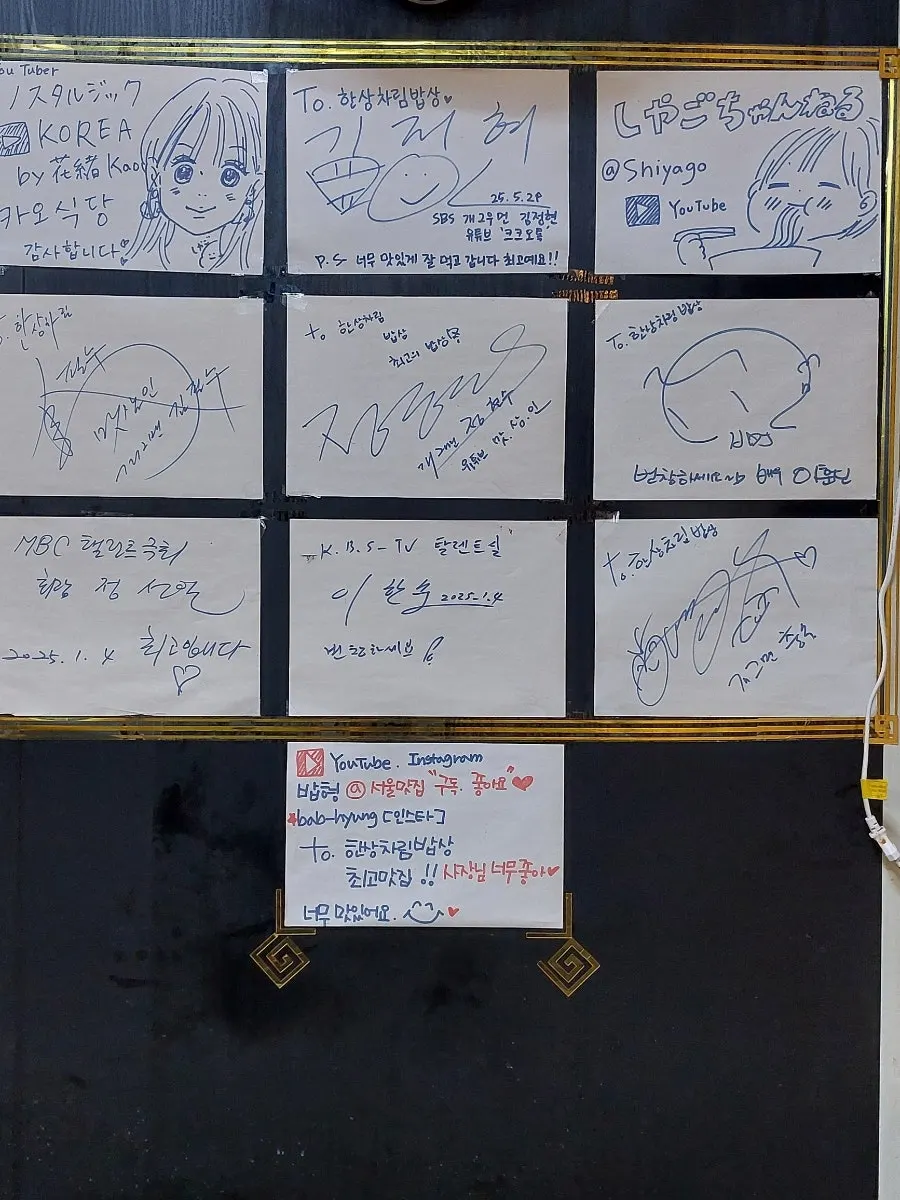 You Tuber
ノスタルジック
KOREA
by 花緒 Kao
카오식당
감사합니다
To. 한상차림밥상♥
25.5.28
SBS 개그우먼 김정현
유튜브
P.S 너무 맛있게 잘 먹고 갑니다 최고예요!!
しゃごちゃんねる
@Shiyago
YouTube
한상차림
맛보인
to 한상차림
밥상
최고의 밥상
개그맨 정현수
유튜브 맛.상.인
To. 한상차림밥상
번창하세요 배우
MBC 탤런트극회
회람 정 선일
2025.1.4 최고입니다
♡
K.B.S-TV 탈렌트실
이 한
2025.1.4
번창하세요
to. 한상차림밥상
개그맨
YouTube. Instagram
밥형 @서울맛집 "구독. 좋아요"♥
*bab-hyung [인스타]
to. 한상차림밥상
최고맛집!! 사장님 너무좋아♥
너무 맛있어요. ♥